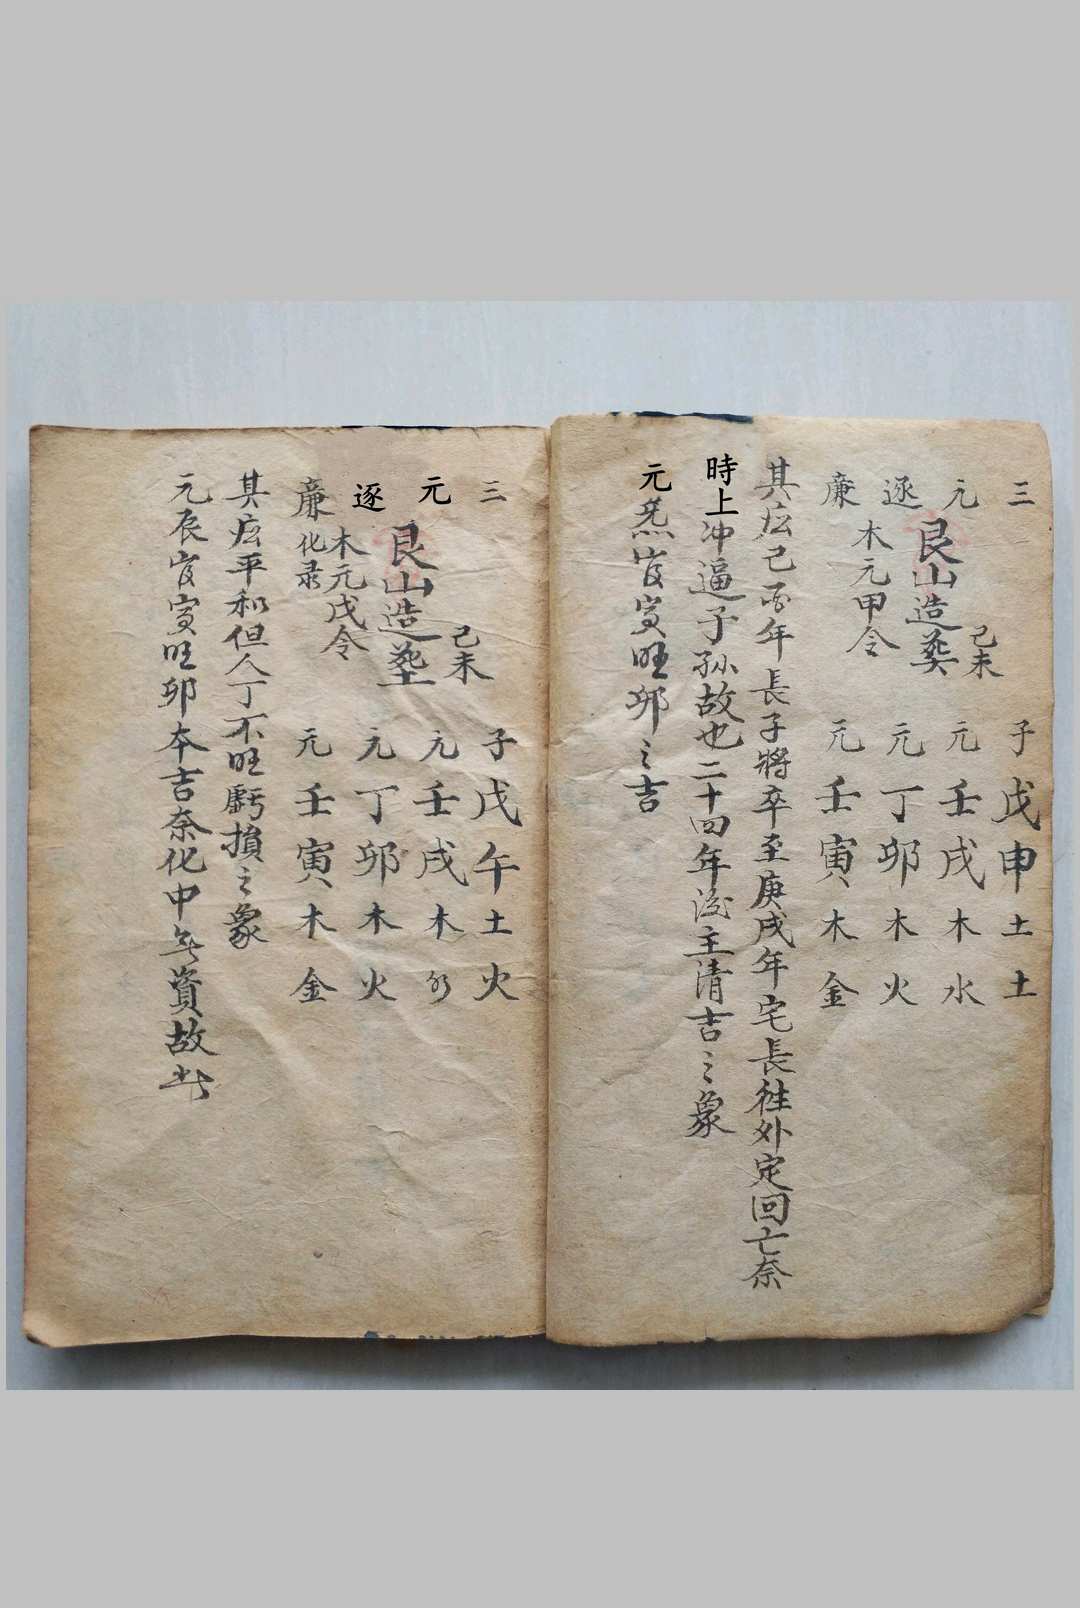 三 子戊申土土
己未
元 元壬戌木水
艮山造葬
逐 元丁卯木火
木元甲令
廉 元壬寅木金
其应己酉年長子將卒至庚戌年宅長往外定回亡奈
時上冲逼子孫故也二十四年後主清吉之象
元 寅旺卯之吉
三 子戊午土火
己未
元 元壬戌木水
艮山造葬
逐 元丁卯木火
木元戊令
廉 元壬寅木金
化录
其应平和但人丁不旺虧損之象
元辰 寅旺卯本吉奈化中无資故